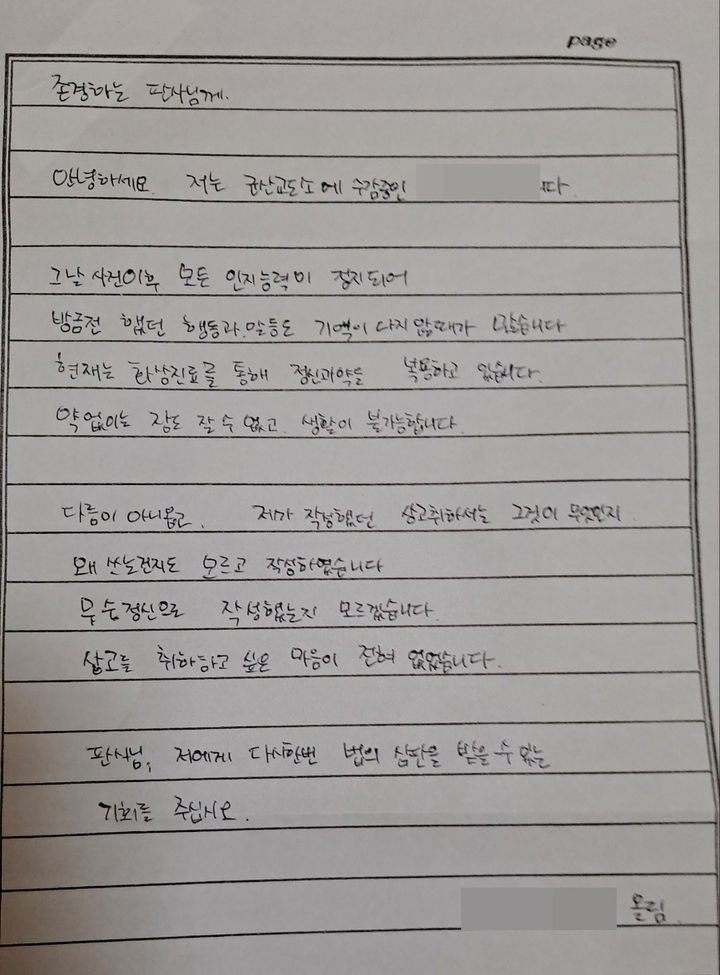 page
존경하는 판사님께.
안녕하세요. 저는 군산교도소에 수감중인 니다.
그날 사건이후 모든 인지능력이 정지되어
방금전 했던 행동과 말등도 기억이 나지 않을때가 많습니다
현재는 화상진료를 통해 정신과약을 복용하고 있습니다.
약 없이는 잠도 잘 수 없고, 생활이 불가능합니다.
다름이 아니옵고, 제가 작성했던 상고취하서는 그것이 무엇인지
왜 쓰는건지도 모르고 작성하였습니다
무슨정신으로 작성했는지 모르겠습니다.
상고를 취하하고 싶은 마음이 전혀 없었습니다.
판사님, 저에게 다시한번 법의 심판을 받을 수 있는
기회를 주십시오.
올림.